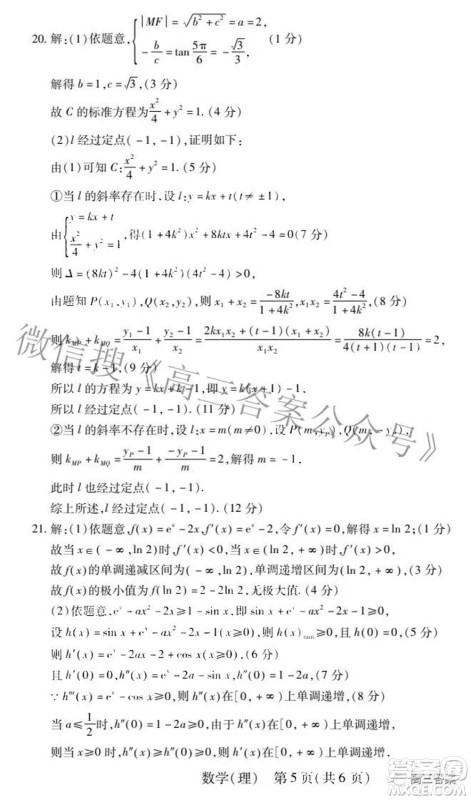 20. 解:(1)依题意,{|MF|=√(b²+c²)=a=2, -b/c=tan 5π/6=-√3/3, (1 分)
解得 b=1,c=√3,(3 分)
故 C 的标准方程为 x²/4+y²=1.(4 分)
(2)l 经过定点(-1,-1),证明如下:
由(1)可知 C:x²/4+y²=1.(5 分)
①当 l 的斜率存在时,设 l:y=kx+t(t≠±1),
由{y=kx+t x²/4+y²=1 ,得(1+4k²)x²+8ktx+4t²-4=0(7 分)
则 Δ=(8kt)²-4(1+4k²)(4t²-4)>0,
由题知 P(x₁,y₁),Q(x₂,y₂),则 x₁+x₂=-8kt/(1+4k²),x₁x₂=(4t²-4)/(1+4k²),(8 分)
则 k_MP+k_MQ=(y₁-1)/x₁+(y₂-1)/x₂=(2kx₁x₂+(t-1)(x₁+x₂))/(x₁x₂)=8k(t-1)/(4(t+1)(t-1))=2,
解得 t=k-1,(9 分)
所以 l 的方程为 y=kx+k-1,即 y=k(x+1)-1.
所以 l 经过定点(-1,-1).(11 分)
②当 l 的斜率不存在时,设 l:x=m(m≠0),设 P(m,y_P),Q(m,
则 k_MP+k_MQ=(y_P-1)/m+(-y_P-1)/m=2,解得 m=-1.
此时 l 也经过定点(-1,-1).
综上所述,l 经过定点(-1,-1).(12 分)
21. 解:(1)依题意,f(x)=eˣ-2x,f′(x)=eˣ-2,令 f′(x)=0,解得 x=ln 2;(1 分)
故当 x∈(-∞,ln 2)时,f′(x)<0,当 x∈(ln 2,+∞)时,f′(x)>0,
故 f(x)的单调递减区间为(-∞,ln 2),单调递增区间为(ln 2,+∞),(3 分)
故 f(x)的极小值为 f(ln 2)=2-2ln 2,无极大值.(4 分)
(2)依题意,eˣ-ax²-2x≥1-sin x,即 sin x+eˣ-ax²-2x-1≥0,
设 h(x)=sin x+eˣ-ax²-2x-1(x≥0),则 h(x)min≥0,且 h(0)=0,(5 分)
则 h′(x)=eˣ-2ax-2+cos x(x≥0),(6 分)
且 h′(0)=0,h″(x)=eˣ-2a-sin x,(7 分)
∵h‴(x)=eˣ-cos x≥0,则 h″(x)在[0,+∞)上单调递增,(8 分)
当 a≤1/2时,h″(0)=1-2a≥0,由于 h″(x)在[0,+∞)上单调递增,
则当 x≥0 时,h″(x)≥h″(0)≥0,则 h′(x)在[0,+∞)上单调递增,
数学(理) 第 5 页(共 6 页)
微信搜《高三答案公众号》